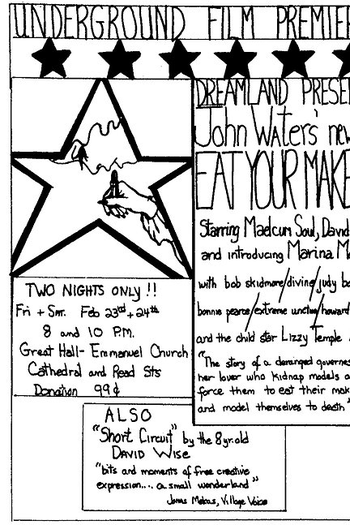 UNDERGROUND FILM PREMIER
DREAMLAND PRESEN
John Waters' new
EAT YOUR MAKE
Starring Maelcum Soul, David
and introducing Marina M
with bob skidmore/divine/judy bo
bonnie pearce/extreme unction/howard
and the child star Lizzy Temple
"The story of a deranged governes
her lover who kidnap models a
force them to eat their mak
and model themselves to death"
TWO NIGHTS ONLY!!
Fri + Sat. Feb 23rd + 24th
8 and 10 P.M.
Great Hall- Emmanuel Church
Cathedral and Read Sts
Donation 99¢
ALSO
"Short Circuit" by the 8yr.old
DAVID WISE
"bits and moments of free creative
expression.... a small wonderland"
Jonas Mekas, Village Voice